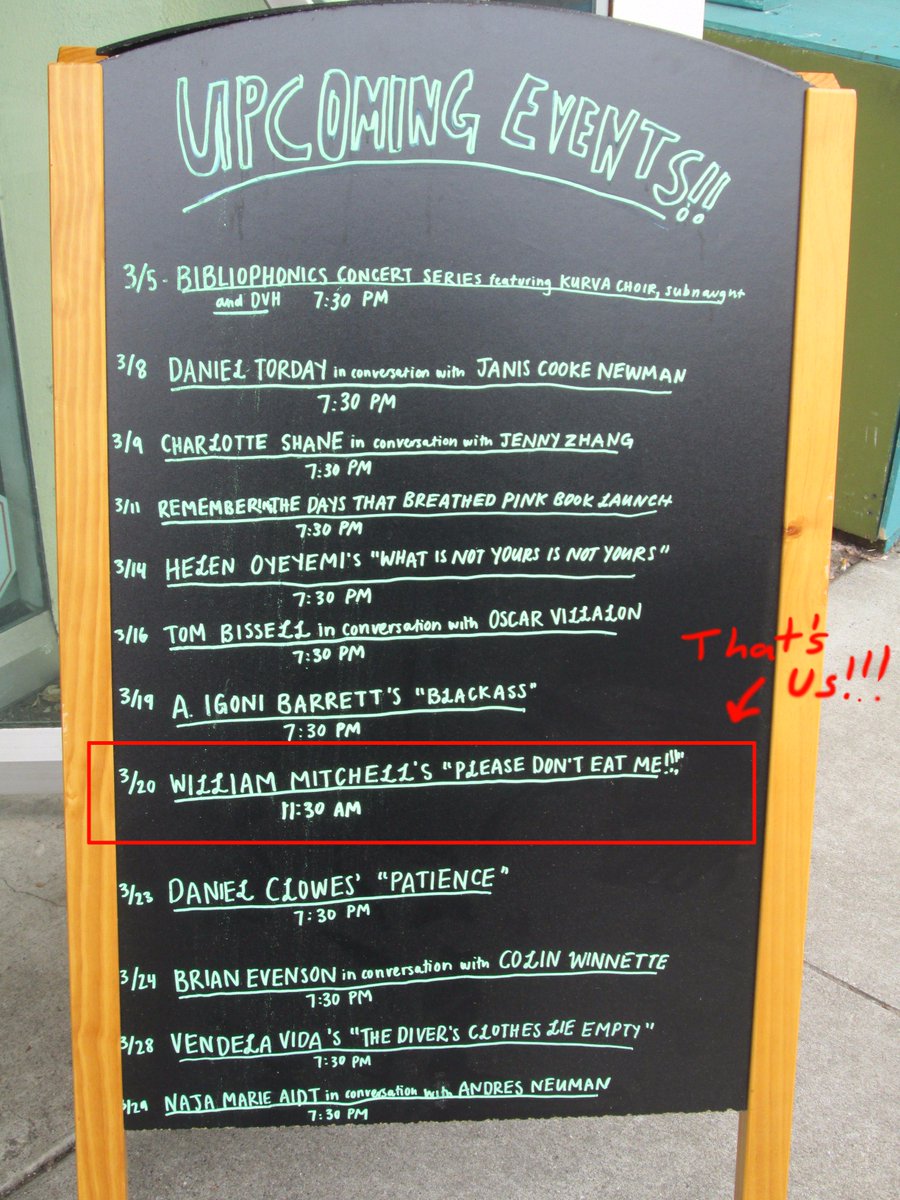 UPCOMING EVENTS!!
3/5 - BIBLIOPHONICS CONCERT SERIES featuring KURVA CHOIR, subnaught
and DVH 7:30 PM
3/8 DANIEL TORDAY in conversation with JANIS COOKE NEWMAN
7:30 PM
3/9 CHARLOTTE SHANE in conversation with JENNY ZHANG
7:30 PM
3/11 REMEMBERING THE DAYS THAT BREATHED PINK BOOK LAUNCH
7:30 PM
3/14 HELEN OYEYEMI'S "WHAT IS NOT YOURS IS NOT YOURS"
7:30 PM
3/16 TOM BISSELL in conversation with OSCAR VILLALON
7:30 PM
That's
Us!!!
3/19 A. IGONI BARRETT'S "BLACKASS"
7:30 PM
3/20 WILLIAM MITCHELL'S "PLEASE DON'T EAT ME!!!"
11:30 AM
3/23 DANIEL CLOWES' "PATIENCE"
7:30 PM
3/24 BRIAN EVENSON in conversation with COLIN WINNETTE
7:30 PM
3/28 VENDELA VIDA'S "THE DIVER'S CLOTHES LIE EMPTY"
7:30 PM
3/29 NAJA MARIE AIDT in conversation with ANDRES NEUMAN
7:30 PM